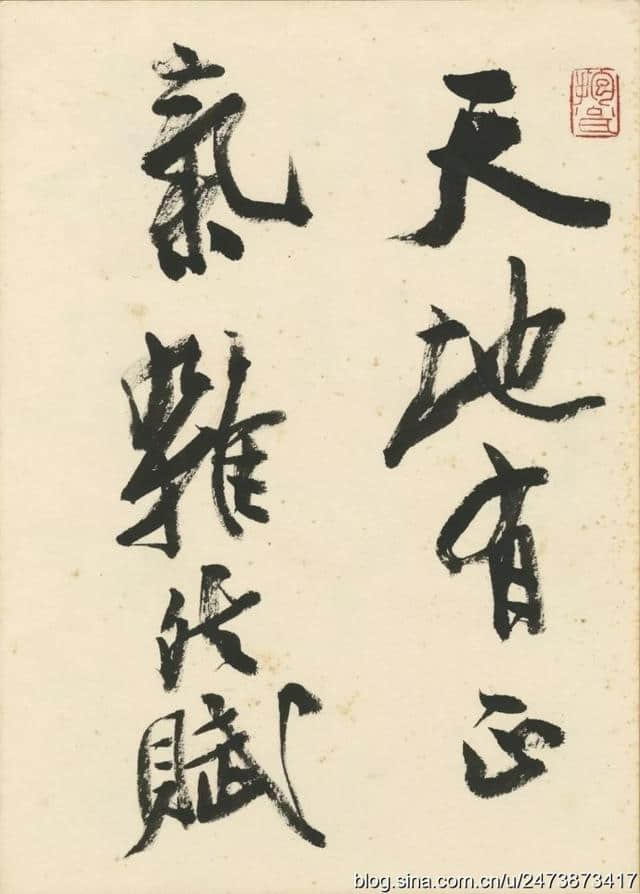 天地有正
氣雜然賦
blog.sina.com.cn/u/2473873417